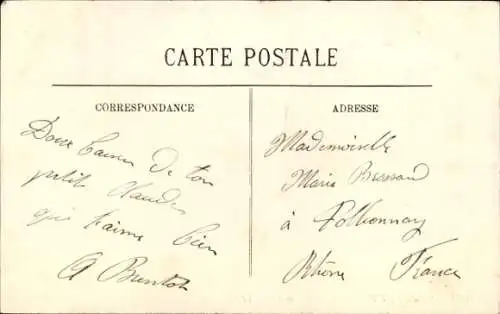 CARTE POSTALE
CORRESPONDANCE
ADRESSE
Doux baiser de ton
petit Claudes
qui t'aime bien
A Bientot
Mademoiselle
Marie
à Pollionnay
Rhône France